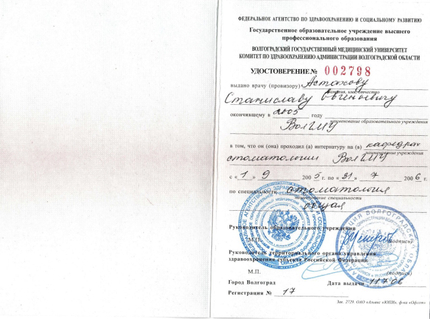 ФЕДЕРАЛЬНОЕ АГЕНТСТВО ПО ЗДРАВООХРАНЕНИЮ И СОЦИАЛЬНОМУ РАЗВИТИЮ
Государственное образовательное учреждение высшего
профессионального образования
ВОЛГОГРАДСКИЙ ГОСУДАРСТВЕННЫЙ МЕДИЦИНСКИЙ УНИВЕРСИТЕТ
КОМИТЕТ ПО ЗДРАВООХРАНЕНИЮ АДМИНИСТРАЦИИ ВОЛГОГРАДСКОЙ ОБЛАСТИ
УДОСТОВЕРЕНИЕ № 002798
выдано врачу (провизору) Астахову
Станиславу Евгеньевичу
окончившему в 2005 году
ВолГМУ
наименование образовательного учреждения
в том, что он (она) проходил (а) интернатуру на (в) кафедре
стоматологии ВолГМУ
с 1 9 2005 г. по 31 7 2006 г.
по специальности стоматология
общая
Руководитель образовательного учреждения
М.П.
Руководитель территориального органа управления
здравоохранением субъекта Российской Федерации
М.П.
Город Волгоград Дата выдачи
Регистрация № 17